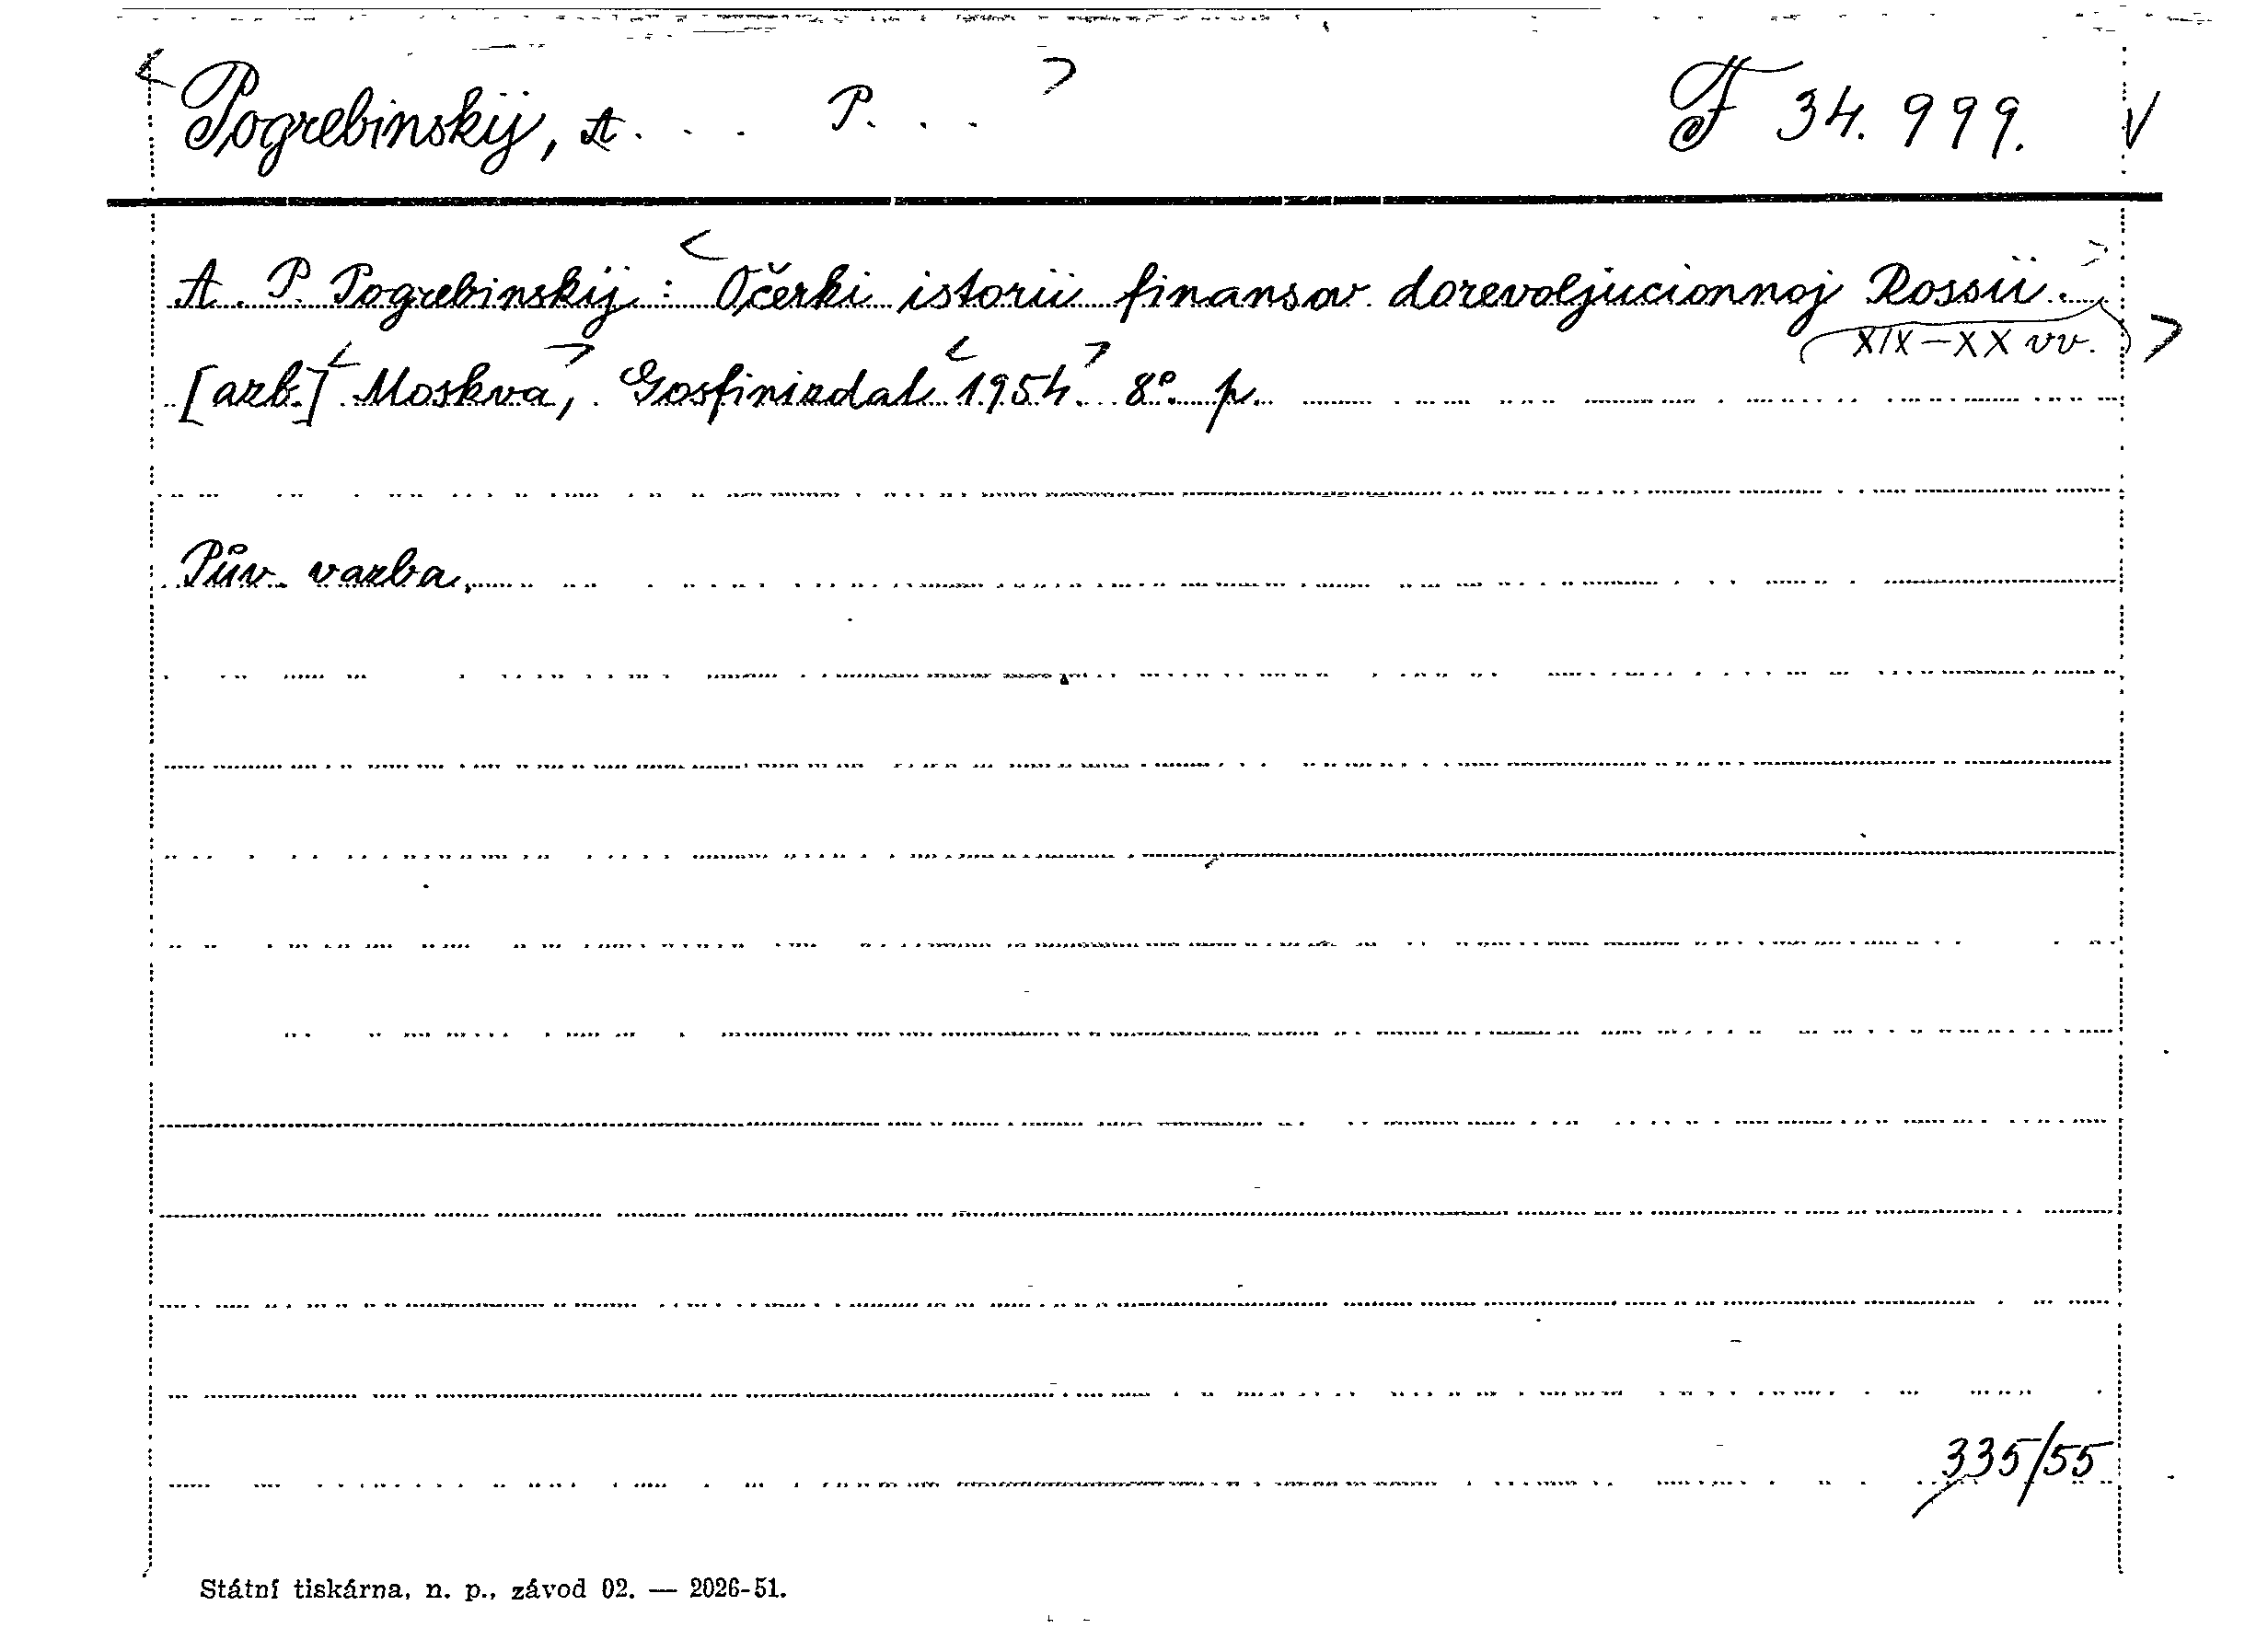 <Pogrebinskij, A... P...> F 34.999. V
A. P. Pogrebinskij: <Očerki istorii finansov dorevoljucionnoj Rossii.>
(XIX-XX vv.)>
[azb.] <Moskva>, Gosfinizdat <1954>. 8°. p.
Pův. vazba.
335/55
Státní tiskárna, n. p., závod 02. — 2026-51.